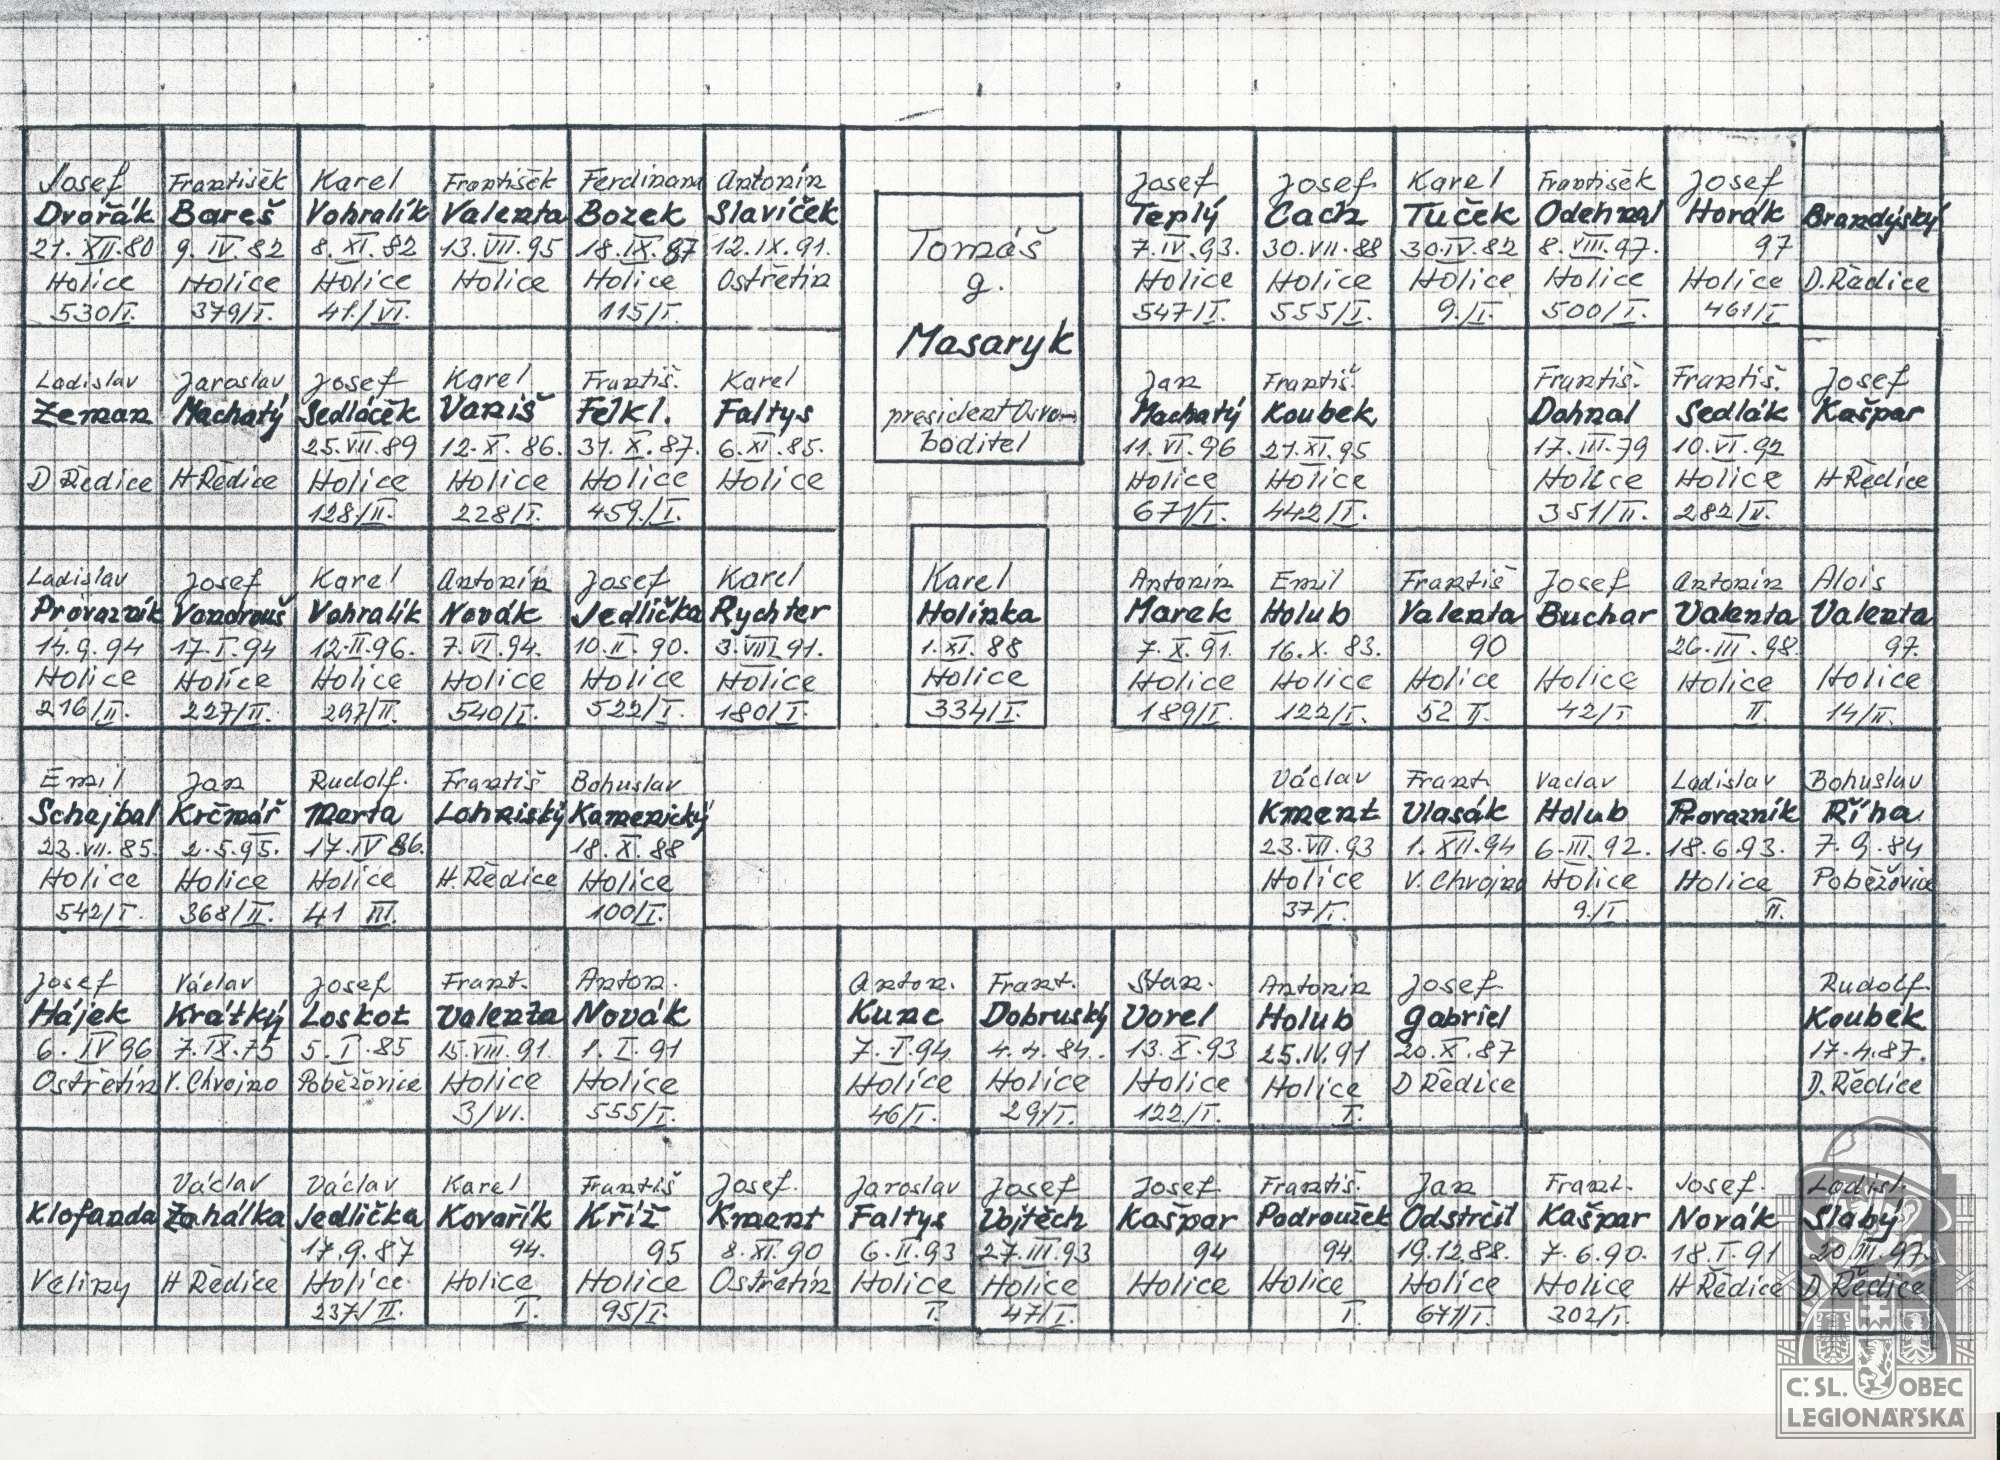 Josef
Dvořák
21. XII. 80
Holice
530/I.
František
Bareš
9. IV. 82
Holice
379/I.
Karel
Vohralík
8. XI. 82
Holice
41./VI.
František
Valenta
13. VII. 95
Holice
Ferdinand
Bozek
18. IX. 87
Holice
115/I.
Antonín
Slavíček
12. IX. 91.
Ostřetín
Tomáš
g.
Masaryk
president Osvo-
boditel
Josef
Teplý
7. IV. 93.
Holice
547/I.
Josef
Cach
30. VII. 88
Holice
555/I.
Karel
Tuček
30. IV. 82
Holice
9./I.
František
Odehnal
8. VIII. 97.
Holice
500/I.
Josef
Horák
97
Holice
461/I
Brandýský
D. Ředice
Ladislav
Zeman
D Ředice
Jaroslav
Machatý
H Ředice
Josef
Sedláček
25. VII. 89
Holice
128/II.
Karel
Vaniš
12. X. 86.
Holice
228/I.
Františ.
Felkl.
31. X. 87.
Holice
459./I.
Karel
Faltys
6. XI. 85.
Holice
Jan
Machatý
11. VI. 96
Holice
671/I.
Františ.
Koubek
21. XI. 95
Holice
442/I.
Františ.
Dohnal
17. III. 79
Holice
351/II.
Františ.
Sedlák
10. VI. 92
Holice
282/II.
Josef
Kašpar
H Ředice
Ladislav
Provazník
14. 9. 94
Holice
216/II.
Josef
Vondrouš
17. I. 94
Holice
227/II.
Karel
Vohralík
12. II. 96.
Holice
297/II.
Antonín
Novák
7. VI. 94.
Holice
540/I.
Josef
Jedlička
10. II. 90.
Holice
522/I.
Karel
Rychter
3. VIII. 91.
Holice
180/I.
Karel
Holinka
1. XI. 88
Holice
334/I.
Antonín
Marek
7. X. 91.
Holice
189/I.
Emil
Holub
16. X. 83.
Holice
122/I.
Františ
Valenta
90
Holice
52 II.
Josef
Buchar
Holice
42/I
Antonín
Valenta
26. III. 98.
Holice
II.
Alois
Valenta
97.
Holice
14/II.
Emil
Schejbal
23. VII. 85.
Holice
542/I.
Jan
Krčmář
2. 5. 95.
Holice
368/II.
Rudolf.
Merta
17. IV 86.
Holice
41 III.
Františ
Lohniský
H. Ředice
Bohuslav
Kamenický
18. XI. 88
Holice
100/I.
Václav
Kment
23. VII. 93
Holice
37/I.
Frant.
Vlasák
1. XII. 94
V. Chvojno
Vaclav
Holub
6. III. 92.
Holice
9./I.
Ladislav
Provazník
18. 6. 93.
Holice
II.
Bohuslav
Říha
7. 9. 84
Poběžovice
Josef
Hájek
6. IV 96
Ostřetín
Václav
Krátký
7. IX. 75
V. Chvojno
Josef
Loskot
5. I. 85
Poběžovice
Frant.
Valenta
15. VIII. 91.
Holice
3/VI.
Anton.
Novák
1. I. 91
Holice
555/I.
Anton.
Kunc
7. I. 94
Holice
46/I.
Frant.
Dobruský
4. 4. 84.
Holice
29./I.
Stan.
Vorel
13. X. 93
Holice
122/I.
Antonín
Holub
25. IV. 91
Holice
I.
Josef
Gabriel
20. X. 87
D Ředice
Rudolf.
Koubek
17. 4. 87.
D. Ředice
Klofanda
Veliny
Václav
Zahálka
H Ředice
Václav
Jedlička
17. 9. 87
Holice
237/II.
Karel
Kovařík
94.
Holice
I.
Františ
Kříž
95
Holice
95/I.
Josef.
Kment
8. XI. 90
Ostřetín
Jaroslav
Faltys
6. II. 93
Holice
I.
Josef
Vojtěch
27. III. 93
Holice
47/I.
Josef
Kašpar
94
Holice
Františ.
Podroužek
94.
Holice
I.
Jan
Odstrčil
19. 12. 88.
Holice
671/I.
Frant.
Kašpar
7. 6. 90.
Holice
302/I.
Josef.
Novák
18. I. 91
H Ředice
Ladisl.
Slabý
20. III. 97.
D. Ředice
Č. SL. OBEC
LEGIONÁŘSKÁ